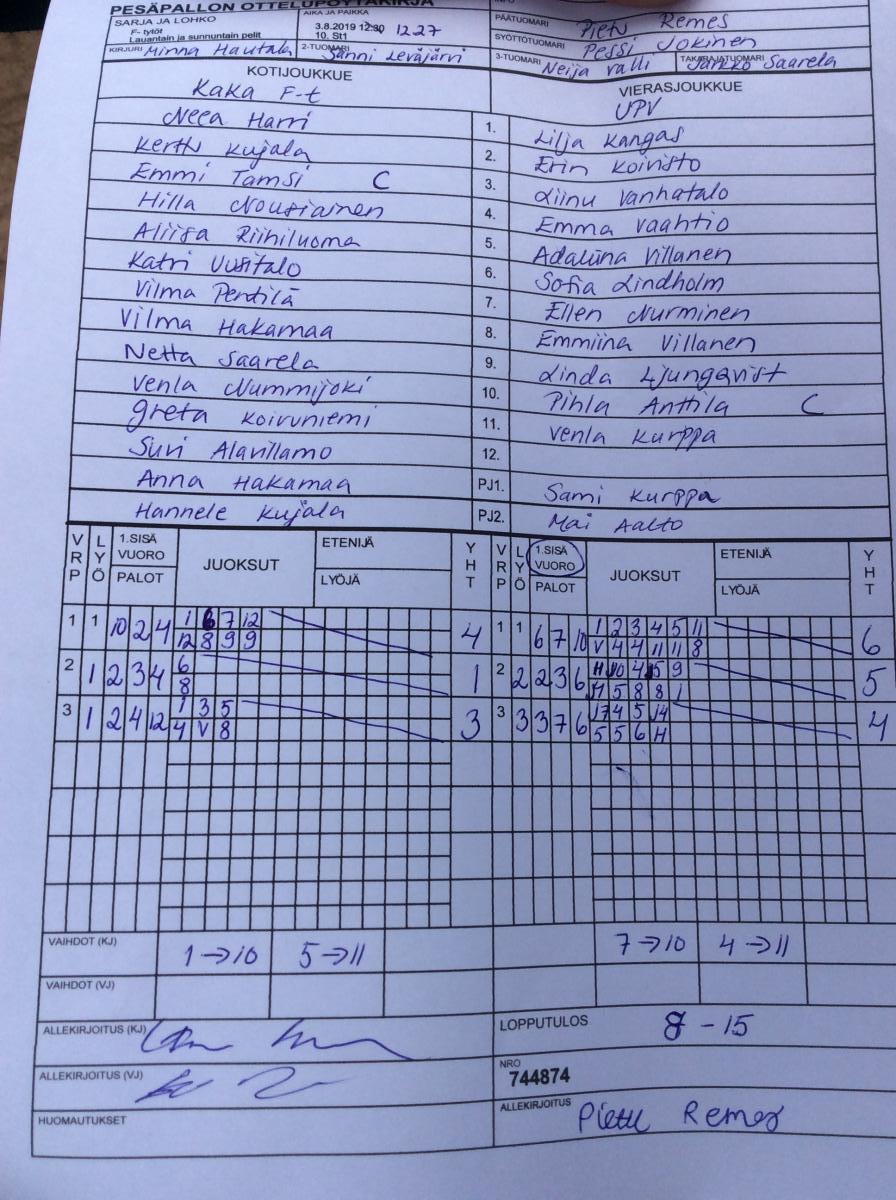 PESÄPALLON OTTELUPÖYTÄKIRJA
SARJA JA LOHKO
F- tytöt
Lauantain ja sunnuntain pelit
AIKA JA PAIKKA
3.8.2019 12:30 1227
10. St1
PÄÄTUOMARI Pietu Remes
SYÖTTÖTUOMARI Pessi Jokinen
KIRJURI Minna Hautala
2-TUOMARI Sanni Leväjärvi
3-TUOMARI Neija Valli
TAKARAJATUOMARI Jarkko Saarela
KOTIJOUKKUE
KaKa F-t
VIERASJOUKKUE
UPV
Neea Harri 1. Lilja Kangas
Kerttu Kujala 2. Erin Koivisto
Emmi Tamsi C 3. Liinu Vanhatalo
Hilla Nousiainen 4. Emma Vaahtio
Aliisa Riihiluoma 5. Adaliina Villanen
Katri Uusitalo 6. Sofia Lindholm
Vilma Penttilä 7. Ellen Nurminen
Vilma Hakamaa 8. Emmiina Villanen
Netta Saarela 9. Linda Ljungqvist
Venla Nummijoki 10. Pihla Anttila C
Greta Koivuniemi 11. Venla Kurppa
Suvi Alavillamo 12.
Anna Hakamaa PJ1. Sami Kurppa
Hannele Kujala PJ2. Mai Aalto
VRP LYÖ 1.SISÄ VUORO PALOT JUOKSUT ETENIJÄ LYÖJÄ YHT VRP LYÖ 1.SISÄ VUORO PALOT JUOKSUT ETENIJÄ LYÖJÄ YHT
1 1 10 2 4 1 6 7 12 4 1 1 6 7 10 1 2 3 4 5 11 6
12 8 9 9 V 4 4 11 11 8
2 1 2 3 4 6 1 2 2 2 3 6 5
8 H 5 8 8 1
3 1 2 4 12 1 3 5 3 3 3 3 7 6 4
4 V 8 5 5 6 H
VAIHDOT (KJ) 1→10 5→11 7→10 4→11
VAIHDOT (VJ)
ALLEKIRJOITUS (KJ)
LOPPUTULOS 8 - 15
ALLEKIRJOITUS (VJ)
NRO
744874
HUOMAUTUKSET
ALLEKIRJOITUS Pietu Remes